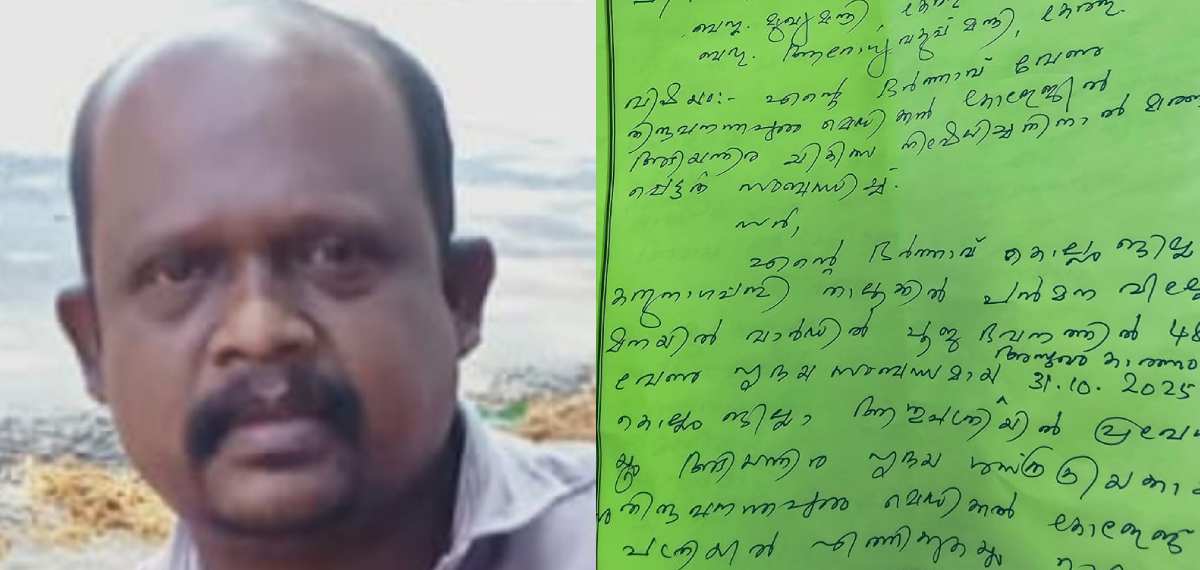 ബഹു. മുഖ്യമന്ത്രി,
ബഹു. ആരോഗ്യ വകുപ്പ് മന്ത്രി, കേരള.
വിഷയം:- എന്റെ ഭർത്താവ് വേണു
തിരുവനന്തപുരം മെഡിക്കൽ കോളേജിൽ
അടിയന്തിര ചികിത്സ നിഷേധിച്ചതിനാൽ മരണ
പ്പെട്ടത് സംബന്ധിച്ച്.
സർ,
എന്റെ ഭർത്താവ് കൊല്ലം ജില്ല
കരുനാഗപ്പള്ളി താലൂക്കിൽ പന്മന വില്ലേ
മനയിൽ വാർഡിൽ പൂജ ഭവനത്തിൽ 48
അസുഖം കാരണം
വേണു ഹൃദയ സംബന്ധമായ 31.10.2025
കൊല്ലം ജില്ലാ ആശുപത്രിയിൽ പ്രവേ
അടിയന്തിര ഹൃദയ ശസ്ത്രക്രിയക്കാ
തിരുവനന്തപുരം മെഡിക്കൽ കോളേജ്
പത്രിയിൽ എത്തിക്കുകയും